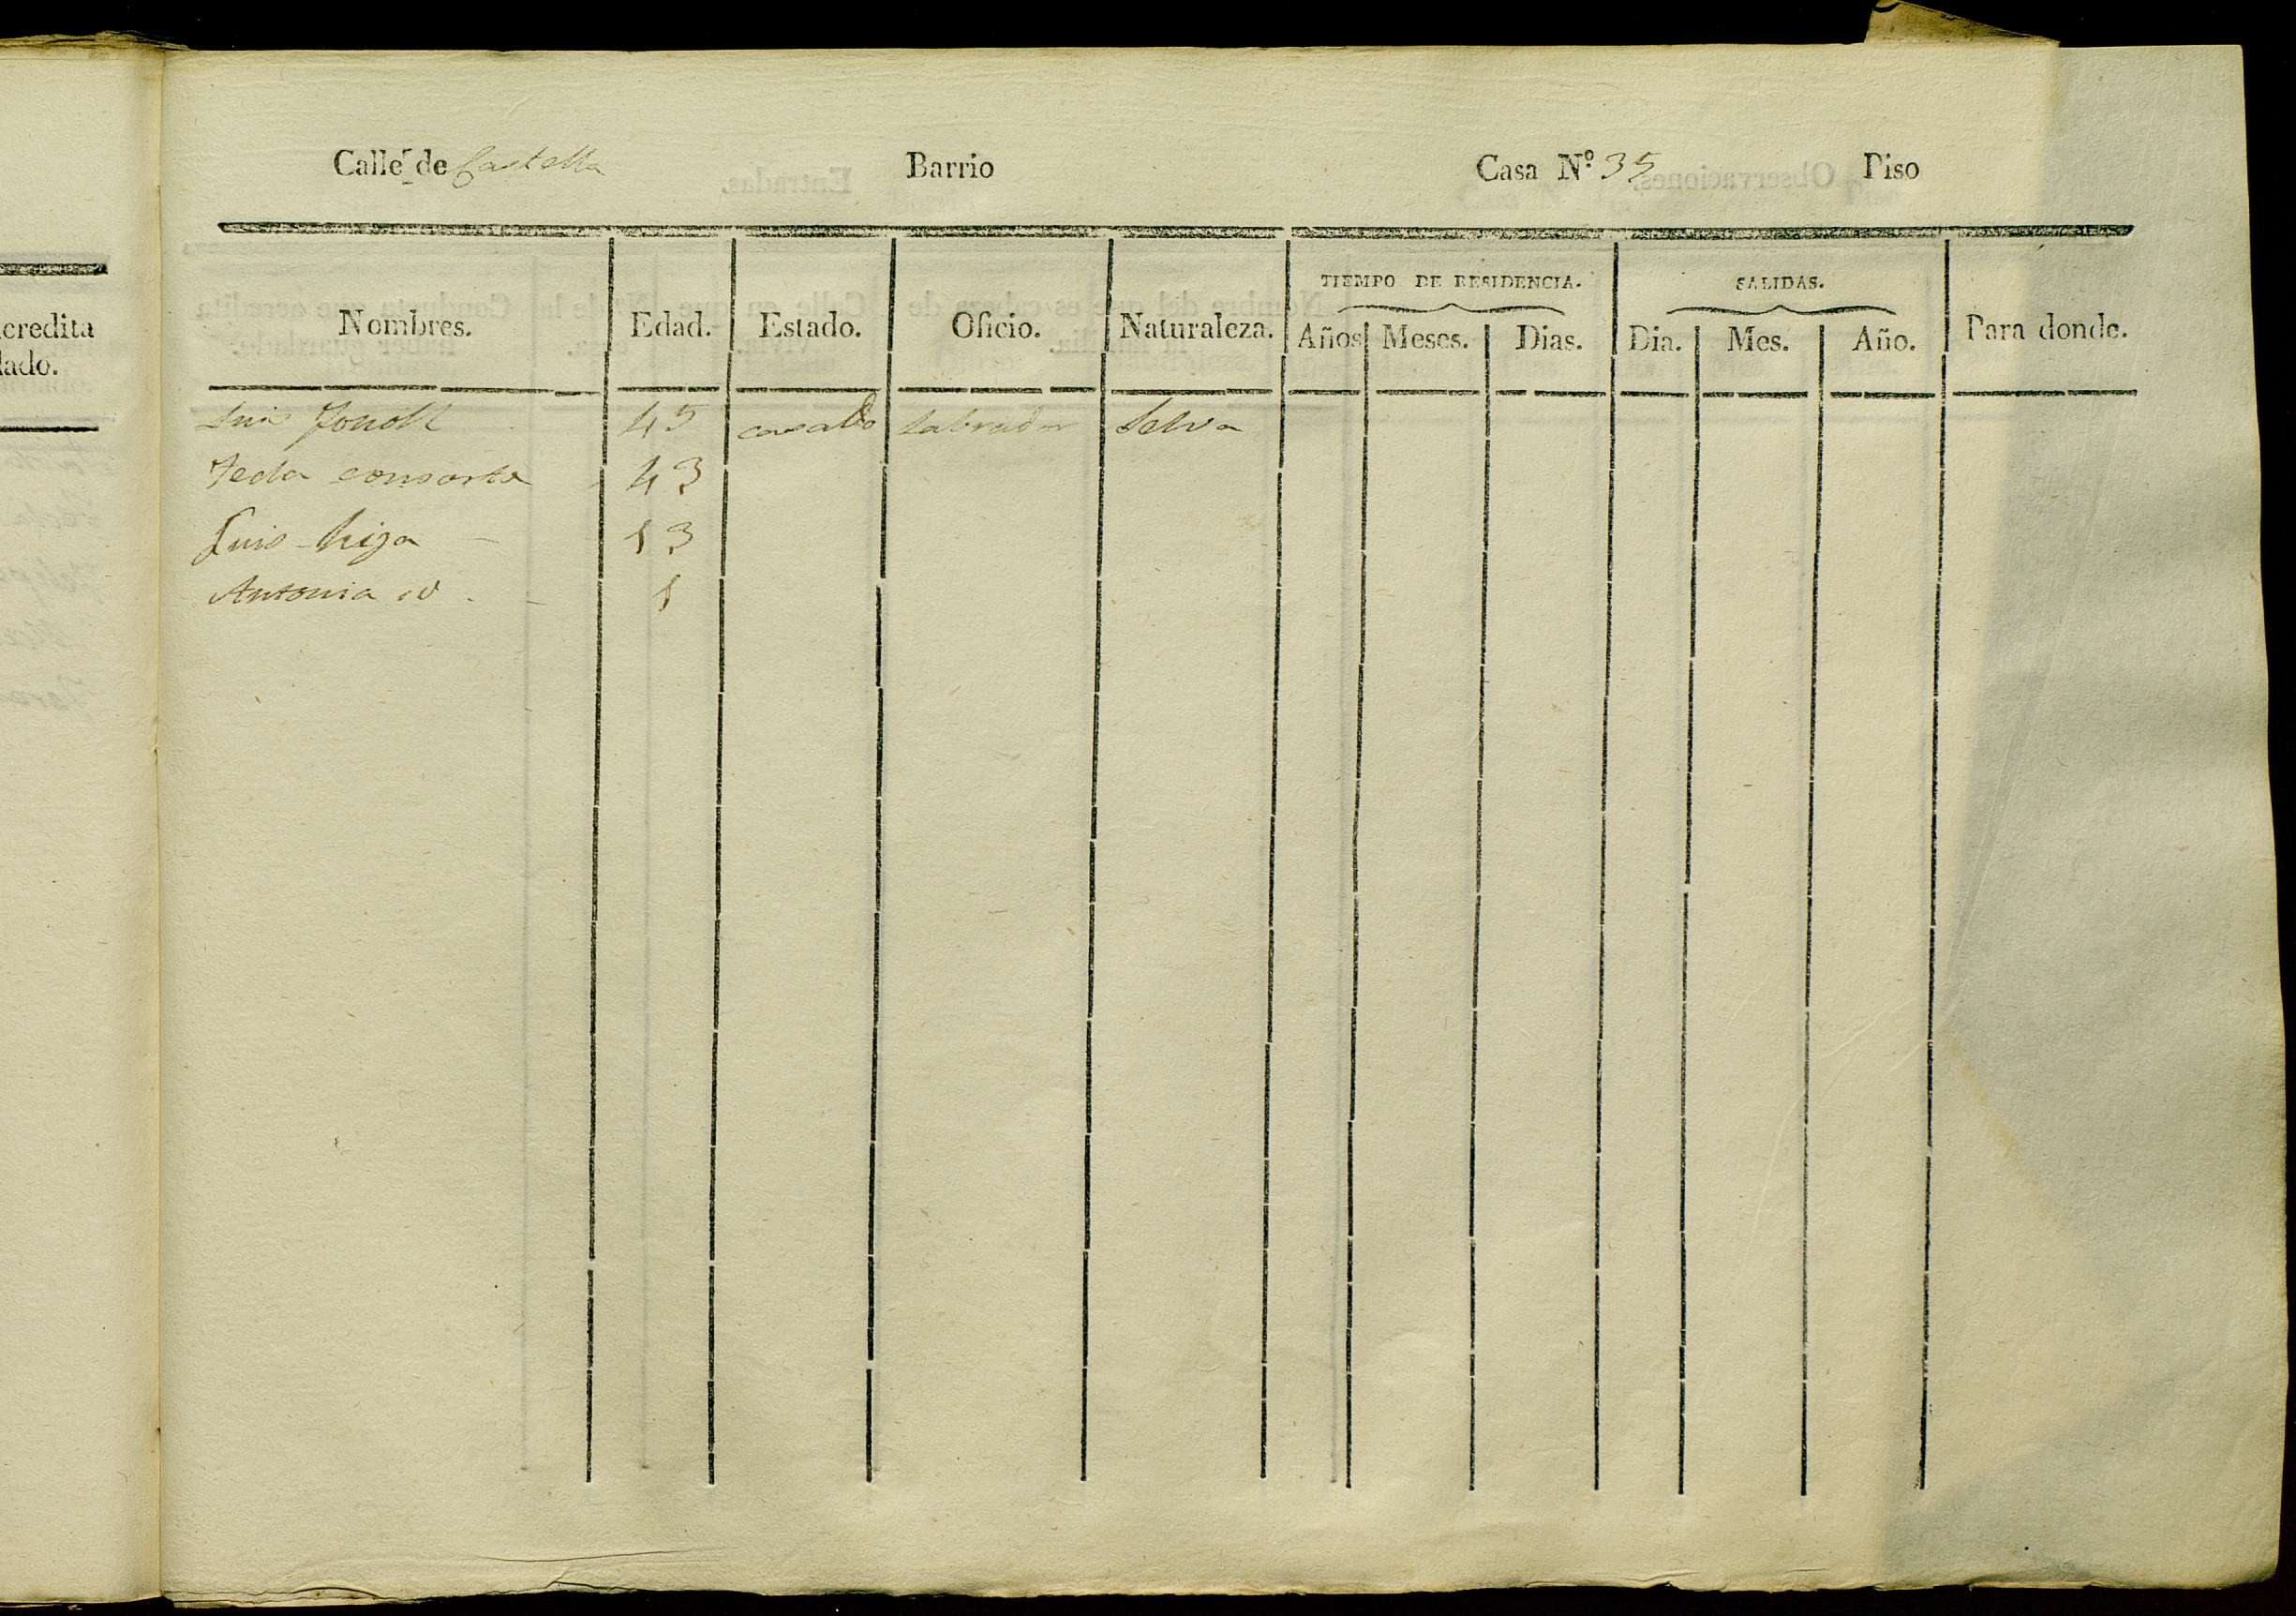 Calle de Castella Barrio Casa N.º 35 Piso
TIEMPO DE RESIDENCIA. SALIDAS.
Nombres. Edad. Estado. Oficio. Naturaleza. Años Meses. Dias. Dia. Mes. Año. Para donde.
Luis 45 casado labrador Selva
Tecla consorte 43
Luis hija 13
Antonia id 1
credita
lado.